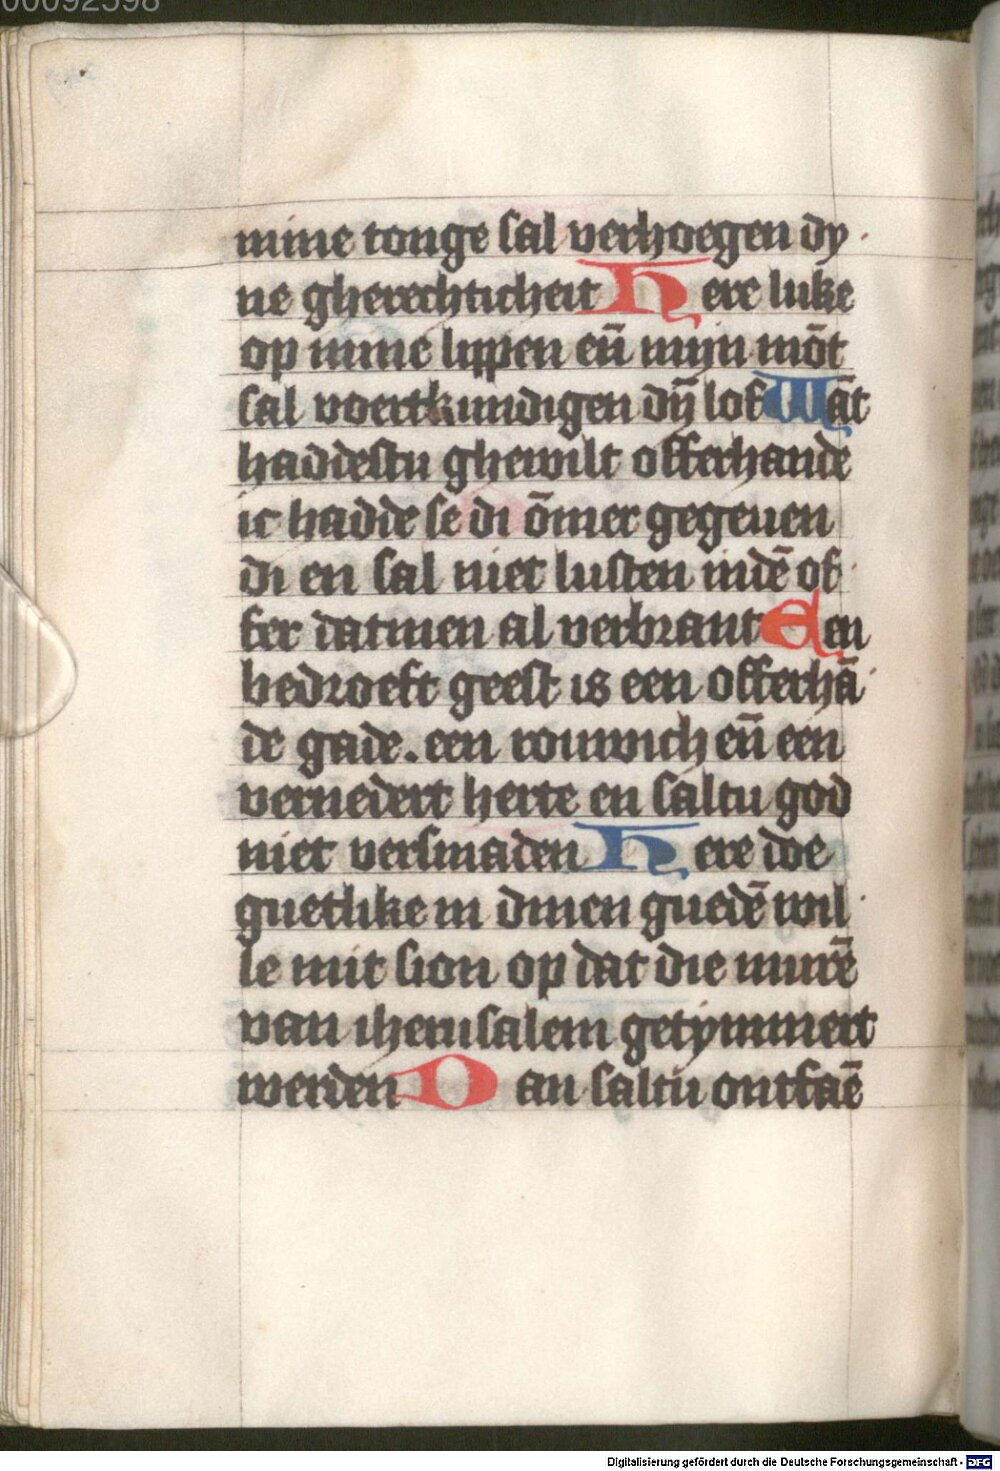 00092598
mine tonge sal verhoegen dy
ne gherechticheit Here luke
op mine lippen eñ mijn mōt
sal voertkundigen dȳ lof Wāt
haddestu ghewilt offerhande
ic hadde se di ōmer gegeuen
di en sal niet lusten indē of
fer datmen al verbrant Een
bedroeft geest is een offerhā
de gade. een rouwich eñ een
vernedert herte en saltu god
niet versmaden Here doe
guetlike in dinen guedē wil
le mit sion op dat die murē
van iherusalem getymmert
werden Dan saltu ontfaē
Digitalisierung gefördert durch die Deutsche Forschungsgemeinschaft - DFG